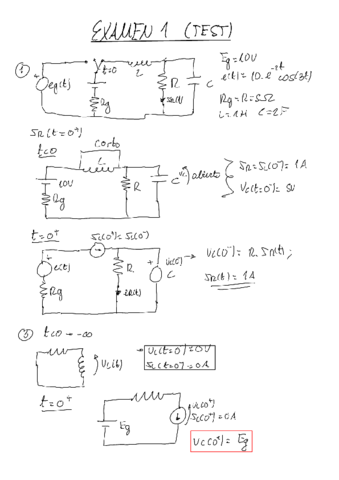 EXAMEN 1 (TEST)
①
eg(t)
t=0
L
Rg
R
C
Eg=10V
e(t)=10.e^-2t cos(3t)
Rg=R=5Ω
L=1H C=2F
iR(t=0+)
t<0
corto
L
10V
Rg
R
C
abierto
iR=iL(0-)=1A
Vc(t=0-)=5V
t=0+
iL(0+)=iL(0-)
e(t)
Rg
R
iR(t)
Vc(0-)
C
→ Vc(0-)=R.iR(t);
iR(t)=1A
③ t<0 → -∞
VL(t)
→ VL(t=0-)=0V
iL(t=0-)=0A
t=0+
Eg
VL(0+)
iL(0+)=0A
VL(0+)=Eg